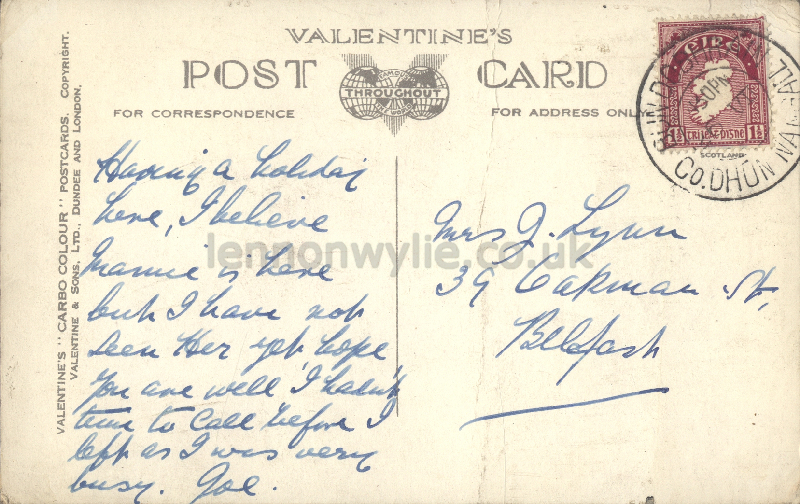 VALENTINE'S
POST CARD
FAMOUS
THROUGHOUT
THE WORLD
FOR CORRESPONDENCE
FOR ADDRESS ONLY
VALENTINE'S "CARBO COLOUR" POSTCARDS. COPYRIGHT.
VALENTINE & SONS, LTD., DUNDEE AND LONDON.
éire
1½ 1½
SCOTLAND
CO. DHÚN NA NGALL
Having a holiday
here, I believe
Mamie is here
but I have not
seen Her yet hope
you are well I hadn't
time to Call before I
left as I was very
busy. Joe.
Mrs J. Lynn
39 Oakman St,
Belfast
lennonwylie.co.uk